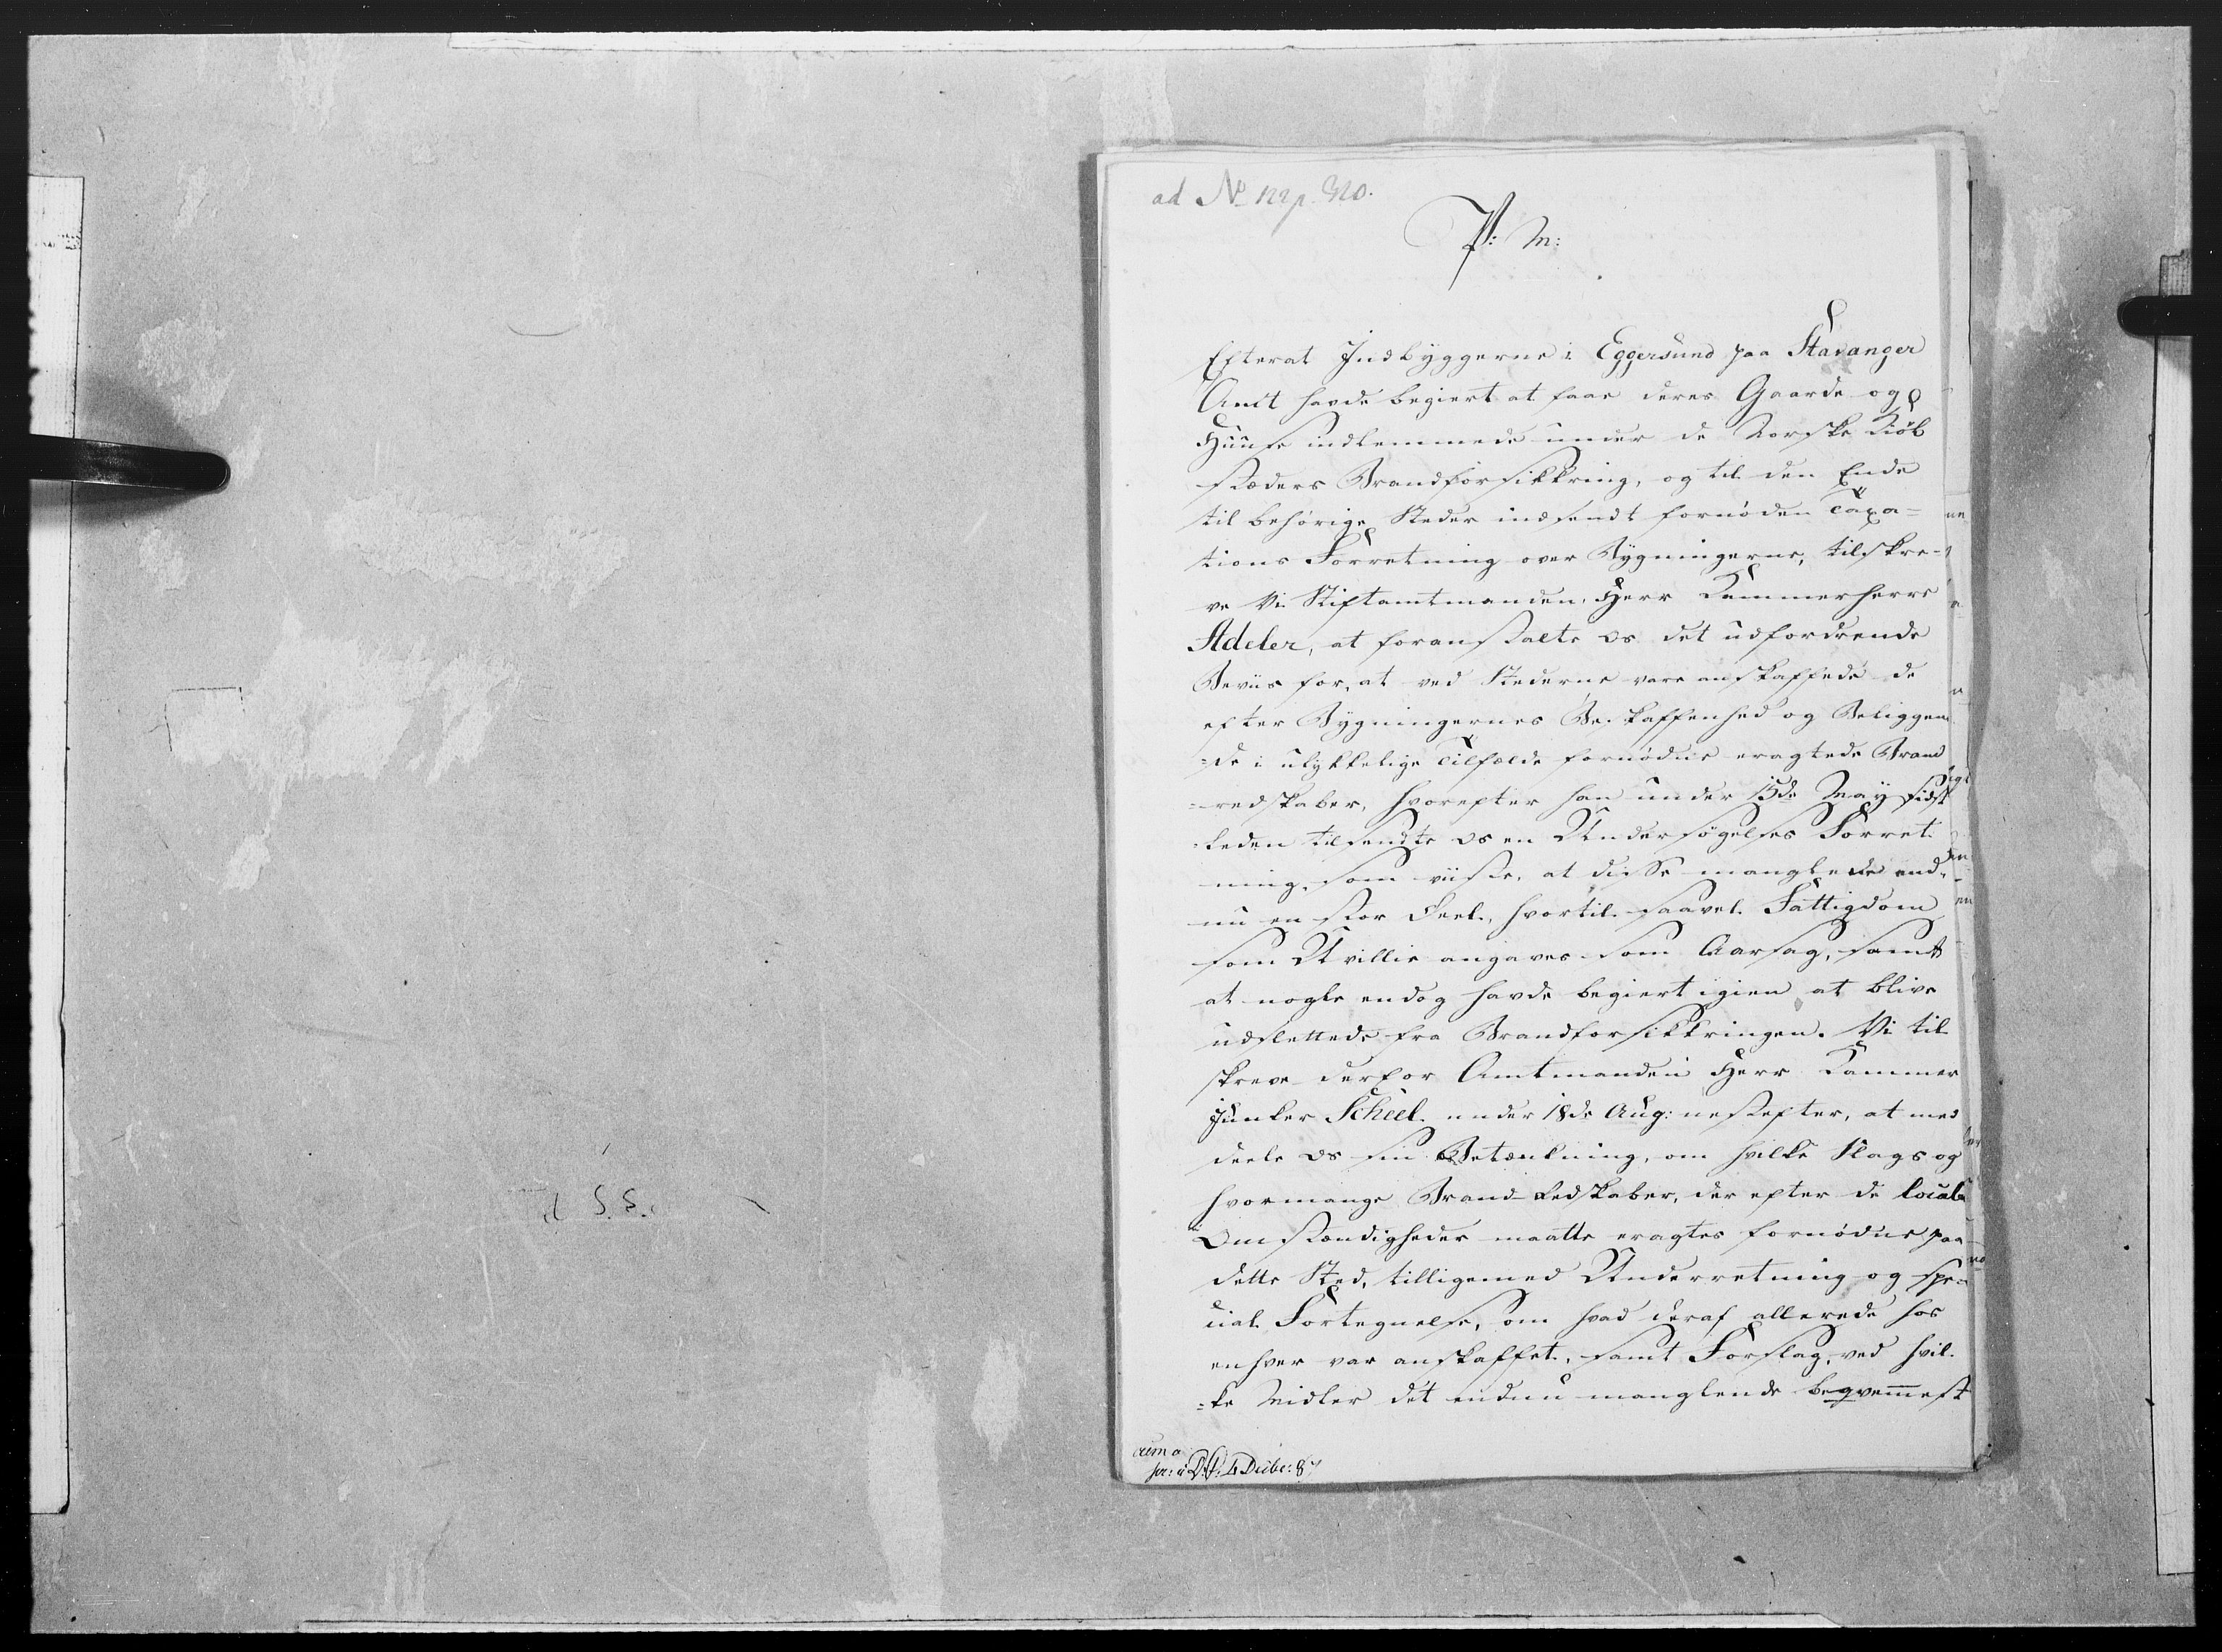 ad No 122 p. 320.
P: M:
Efterat Indbyggerne i Eggersund paa Stavanger
Amt havde begiert at faae deres Gaarde og
Huuse indlemmede under de Norske Kiøb
stæders Brandforsikkring, og til den Ende
til behørige Steder indsendt fornøden Taxa-
tions Forretning over Bygningerne, tilskre-
ve Vi Stiftamtmanden Herr Kammerherre
Adeler, at foranstalte os det udfordrende
Beviis for, at ved Stederne vare anskaffede de
efter Bygningernes Beskaffenhed og Beliggen
=de i ulykkelige Tilfælde fornødne eragtede Brand
=redskaber, hvorefter han under 15de Maÿ sidst
=leden tilsendte os en Undersøgelses Forret
ning, som viiste, at disse manglede end-
nu en stor Deel, hvortil saavel Fattigdom
som Uvillie angaves som Aarsag, samt
at nogle endog havde begiert igien at blive
udslettede fra Brandforsikkringen. Vi til
skreve derfor Amtmanden Herr Kammer
Junker Scheel under 18de Aug: nestefter, at med
deele os sin Betænkning, om hvilke Slags og
hvormange Brand-Redskaber, der efter de locale
Omstændigheder maatte eragtes fornødne paa
dette Sted, tilligemed Underretning og spe-
cial Fortegnelse, om hvad deraf allerede hos
enhver var anskaffet, samt Forslag, ved hvil-
=ke Midler det endnu manglende beqvemmest